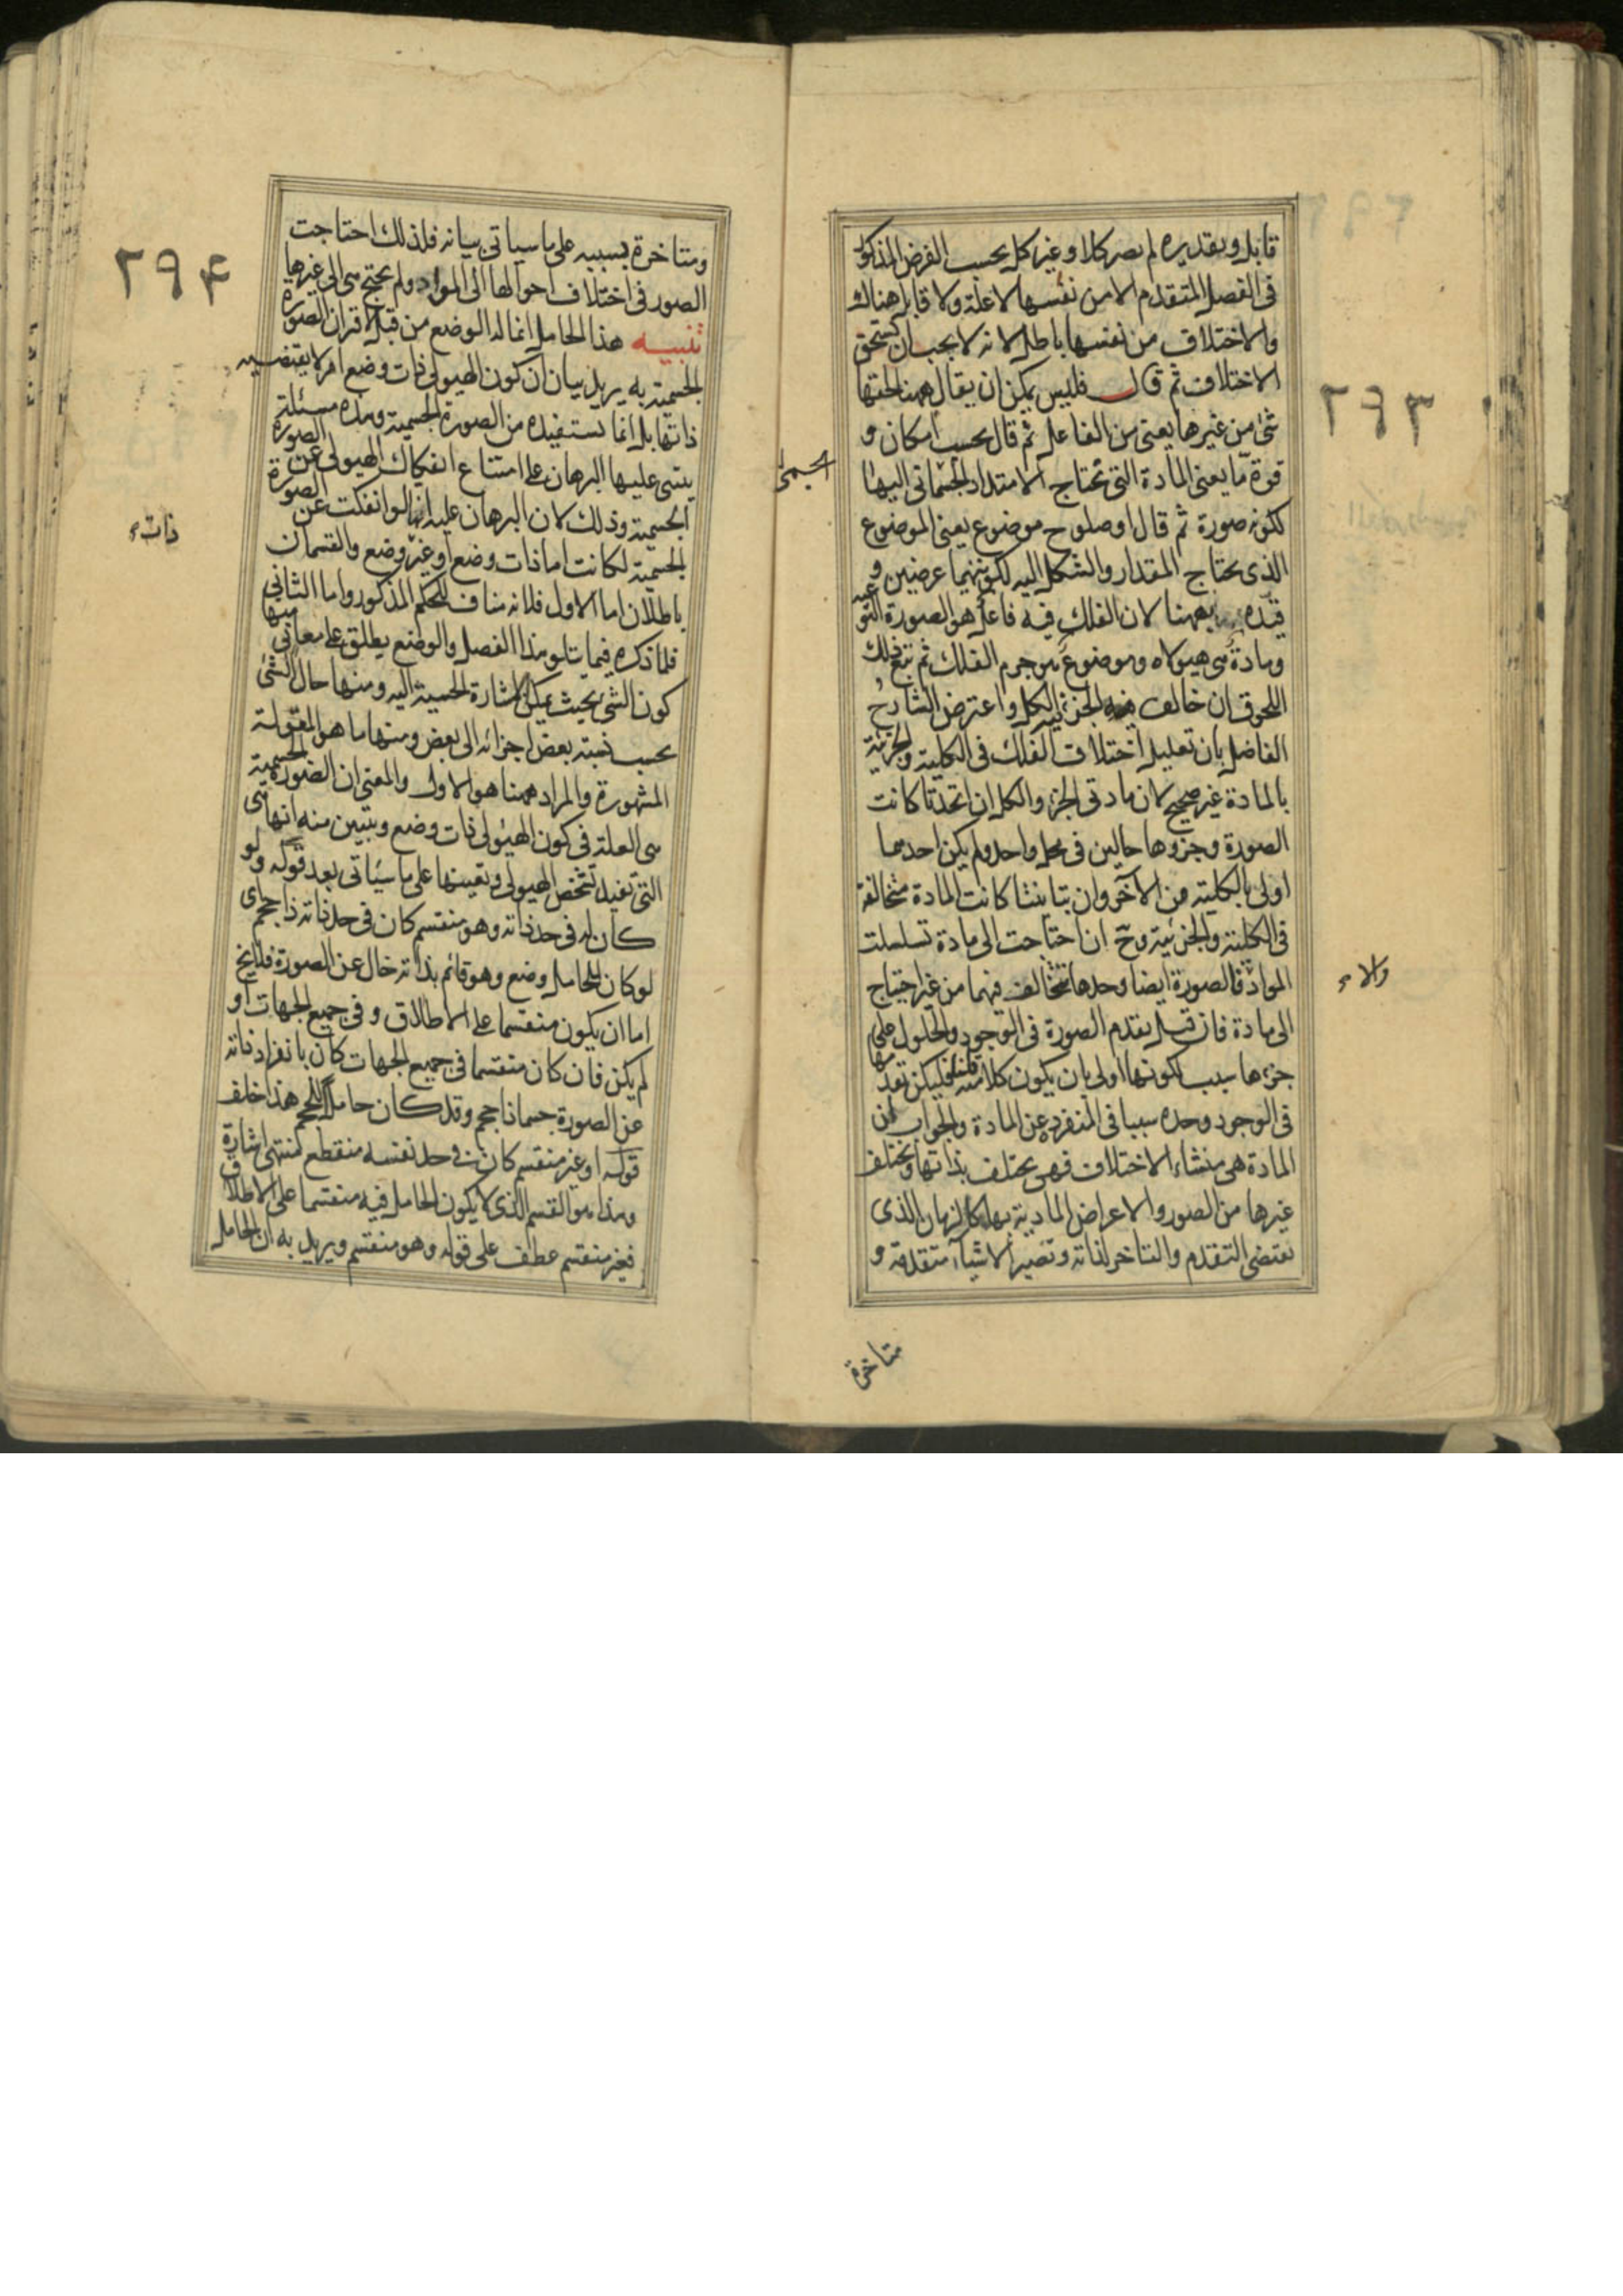 ٢٩٣
قابل وبتقديره لم يصر كلا وغير كل بحسب الفرض المذكور
فى الفصل المتقدم الا من نفسها لا علة ولا قابل هناك
والاختلاف من نفسها باطل لانه لا يجب ان يستحق
الاختلاف ثم قال فليس يمكن ان يقال ههنا لحقها
شئ من غيرها يعنى من الفاعل ثم قال بحسب امكان و
قوة ما يعنى المادة التى تحتاج الامتداد الجسمانى اليها
ككونه صورة ثم قال او صلوح موضوع يعنى الموضوع
الذى يحتاج المقدار والشكل اليه لكونهما عرضين و
قيده بههنا لان الفلك فيه فاعل هو الصورة النوعية
ومادة هى هيولاه وموضوع هو جرم الفلك ثم تبع ذلك
اللحوق ان خالف الجزء الكل واعترض الشارح
الفاضل بان تعليل اختلاف الفلك فى الكلية والجزئية
بالمادة غير صحيح لان مادتى الجزء والكل ان اتحدتا كانت
الصورة وجزوها حالين فى محل واحد ولم يكن احدهما
اولى بالكلية من الآخر وان تباينتا كانت المادة متخالفة
فى الكلية والجزئية وح ان احتاجت الى مادة تسلسلت
المواد فالصورة ايضا وحدها تتخالف فيهما من غير احتياج
الى مادة فان قيل تقدم الصورة فى الوجود والحلول على
جزءها سبب لكونها اولى بان يكون كلا منه قلنا فليكن تقدمها
فى الوجود وحده سببا فى المنفرد عن المادة والجواب ان
المادة هى منشاء الاختلاف فهى تختلف بذاتها وتختلف
غيرها من الصور والاعراض المادية بها كالزمان الذى
يقتضى التقدم والتاخر لذاته وتصير الاشياء متقدمة و
الجسمى
والا
متاخرة
٢٩۴
ومتاخرة بسببه على ما سياتى بيانه فلذلك احتاجت
الصور فى اختلاف احوالها الى المواد ولم تحتج هى الى غيرها
تنبيه هذا الحامل انما له الوضع من قبل اقتران الصورة
الجسمية به يريد بيان ان كون الهيولى ذات وضع امر لا يقتضيه
ذاتها بل انما تستفيده من الصورة الجسمية وهذه مسئلة
يبتنى عليها البرهان على امتناع انفكاك الهيولى عن الصورة
الجسمية وذلك لان البرهان عليه انها لو انفكت عن الصورة
الجسمية لكانت اما ذات وضع او غير وضع والقسمان
باطلان اما الاول فلانه مناف للحكم المذكور واما الثانى
فلما ذكره فيما يتلو هذا الفصل والوضع يطلق على معانى منها
كون الشئ بحيث يمكن الاشارة الحسية اليه ومنها حال الشئ
بحسب نسبة بعض اجزائه الى بعض ومنها ما هو المقولة
المشهورة والمراد ههنا هو الاول والمعنى ان الصورة الجسمية
هى العلة فى كون الهيولى ذات وضع ويتبين منه انها هى
التى تفيد تشخص الهيولى وتعينها على ما سياتى بعد قوله ولو
كان له فى حد ذاته وهو منقسم كان فى حد ذاته ذا حجم اى
لو كان للحامل وضع وهو قائم بذاته خال عن الصورة فلا يخ
اما ان يكون منقسما على الاطلاق وفى جميع الجهات او
لم يكن فان كان منقسما فى جميع الجهات كان بانفراد ذاته
عن الصورة جسما ذا حجم وقد كان حاملا للحجم هذا خلف
قوله او غير منقسم كان فى حد نفسه منقطع منتهى اشارة
وهذا هو القسم الذى لا يكون الحامل فيه منقسما على الاطلاق
فغير منقسم عطف على قوله وهو منقسم ويريد به ان الحامل
ذات